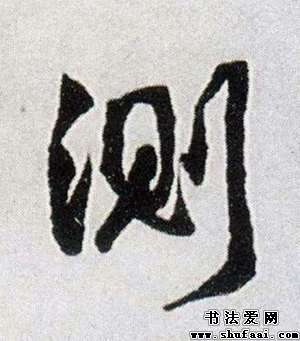 测
书法爱网
www.shufaai.com